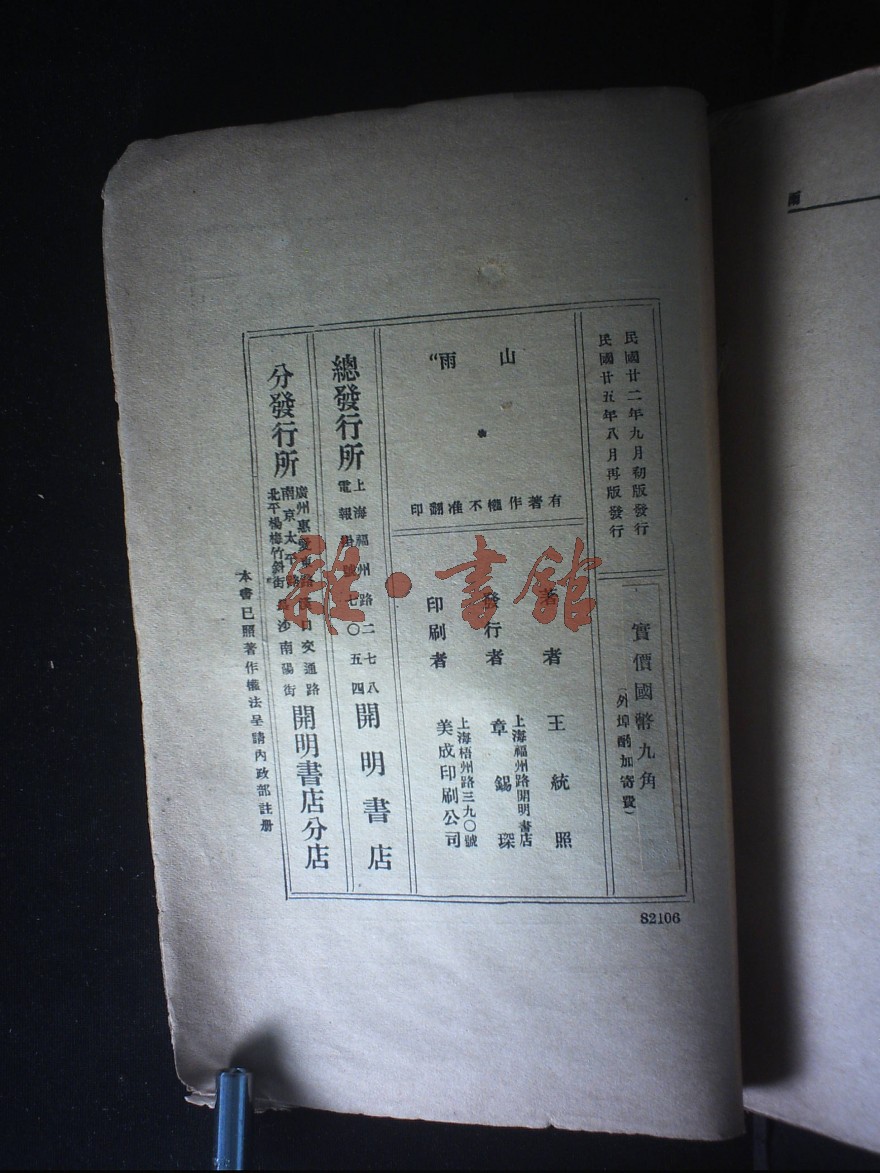 雨
民國廿二年九月初版發行
民國廿五年八月再版發行
實價國幣九角
(外埠酌加寄費)
山雨
有著作權不准翻印
著者 王統照
發行者 章錫琛
上海福州路開明書店
印刷者 美成印刷公司
上海梧州路三九〇號
總發行所 開明書店
上海福州路二七八
電報掛號七〇五四
分發行所 開明書店分店
廣州惠愛東路 漢口交通路
南京太平路 長沙南陽街
北平楊梅竹斜街
本書已照著作權法呈請內政部註册
82106
雜·書館